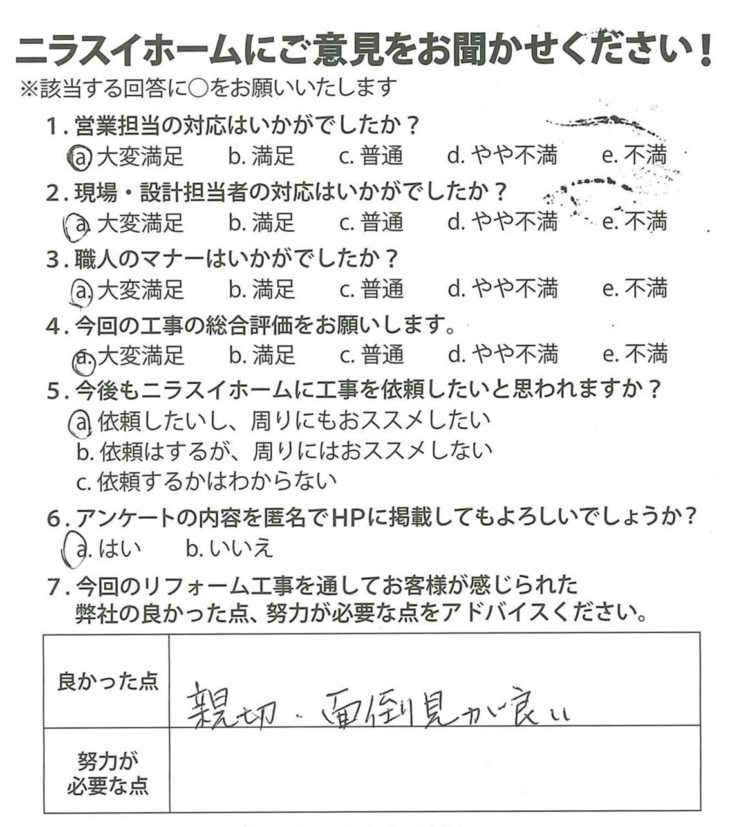 ニラスイホームにご意見をお聞かせください！
※該当する回答に○をお願いいたします
1．営業担当の対応はいかがでしたか？
a. 大変満足　b. 満足　c. 普通　d. やや不満　e. 不満
2．現場・設計担当者の対応はいかがでしたか？
a. 大変満足　b. 満足　c. 普通　d. やや不満　e. 不満
3．職人のマナーはいかがでしたか？
a. 大変満足　b. 満足　c. 普通　d. やや不満　e. 不満
4．今回の工事の総合評価をお願いします。
a. 大変満足　b. 満足　c. 普通　d. やや不満　e. 不満
5．今後もニラスイホームに工事を依頼したいと思われますか？
a. 依頼したいし、周りにもおススメしたい
b. 依頼はするが、周りにはおススメしない
c. 依頼するかはわからない
6．アンケートの内容を匿名でHPに掲載してもよろしいでしょうか？
a. はい　b. いいえ
7．今回のリフォーム工事を通してお客様が感じられた
弊社の良かった点、努力が必要な点をアドバイスください。
良かった点
親切・面倒見が良い
努力が
必要な点